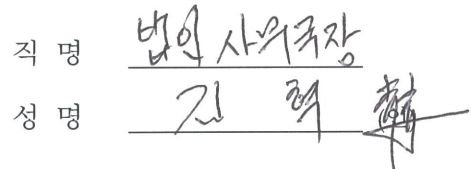 직 명 법인 사무국장
성 명 김 혁